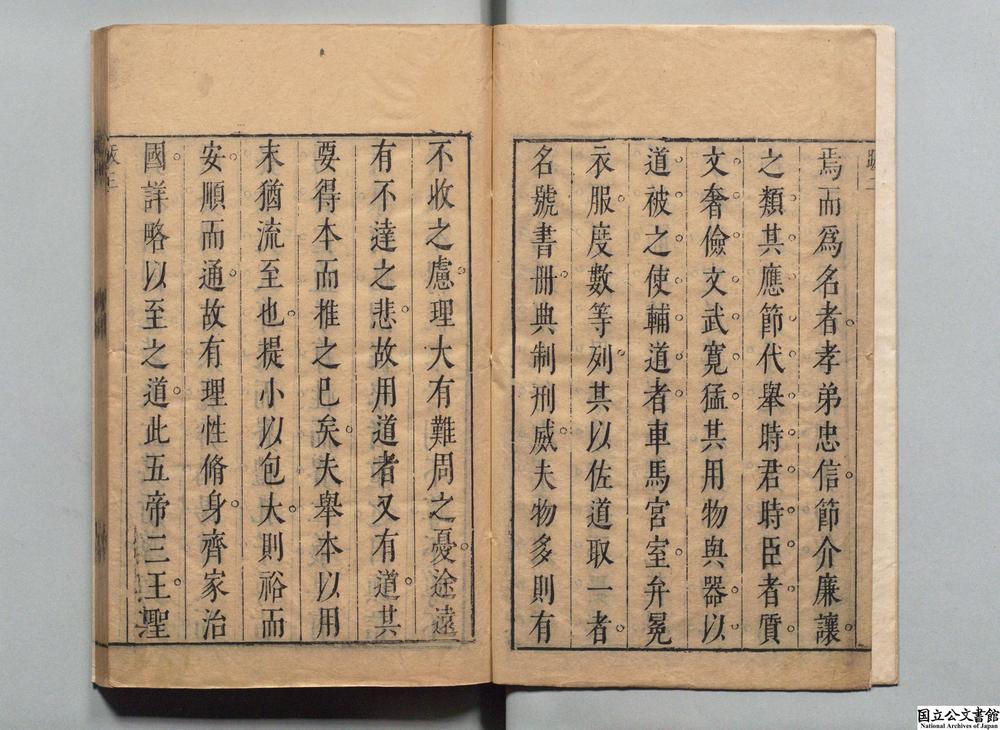 焉而爲名者孝弟忠信節介廉讓
之類其應節代舉時君時臣者質
文奢儉文武寬猛其用物與器以
道被之使輔道者車馬宮室弁冕
衣服度數等列其以佐道取一者
名號書冊典制刑威夫物多則有
不收之慮理大有難周之憂途遠
有不達之悲故用道者又有道其
要得本而推之已矣夫舉本以用
末猶流至也提小以包大則裕而
安順而通故有理性脩身齊家治
國詳略以至之道此五帝三王聖
国立公文書館
National Archives of Japan